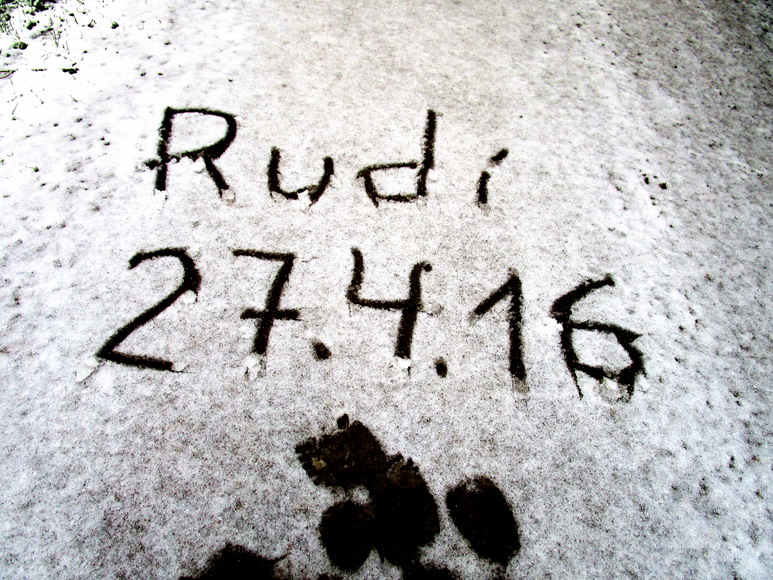 Rudi
27.4.16